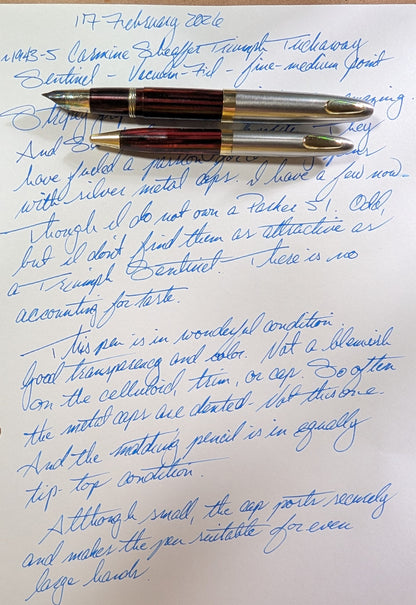 17 February 2026
~1943-5 Carmine Sheaffer Triumph Tuckaway
Sentinel - Vacuum-Fil - fine-medium point
amazing.
They
And
have fueled a passion for
with silver metal caps. I have a few now -
Though I do not own a Parker 51. Odd,
but I don't find them as attractive as
a Triumph Sentinel. There is no
accounting for taste.
This pen is in wonderful condition.
Good transparency and color. Not a blemish
on the celluloid, trim, or cap. So often
the metal caps are dented. Not this one.
And the matching pencil is in equally
tip-top condition.
Although small, the cap posts securely
and makes the pen suitable for even
large hands.